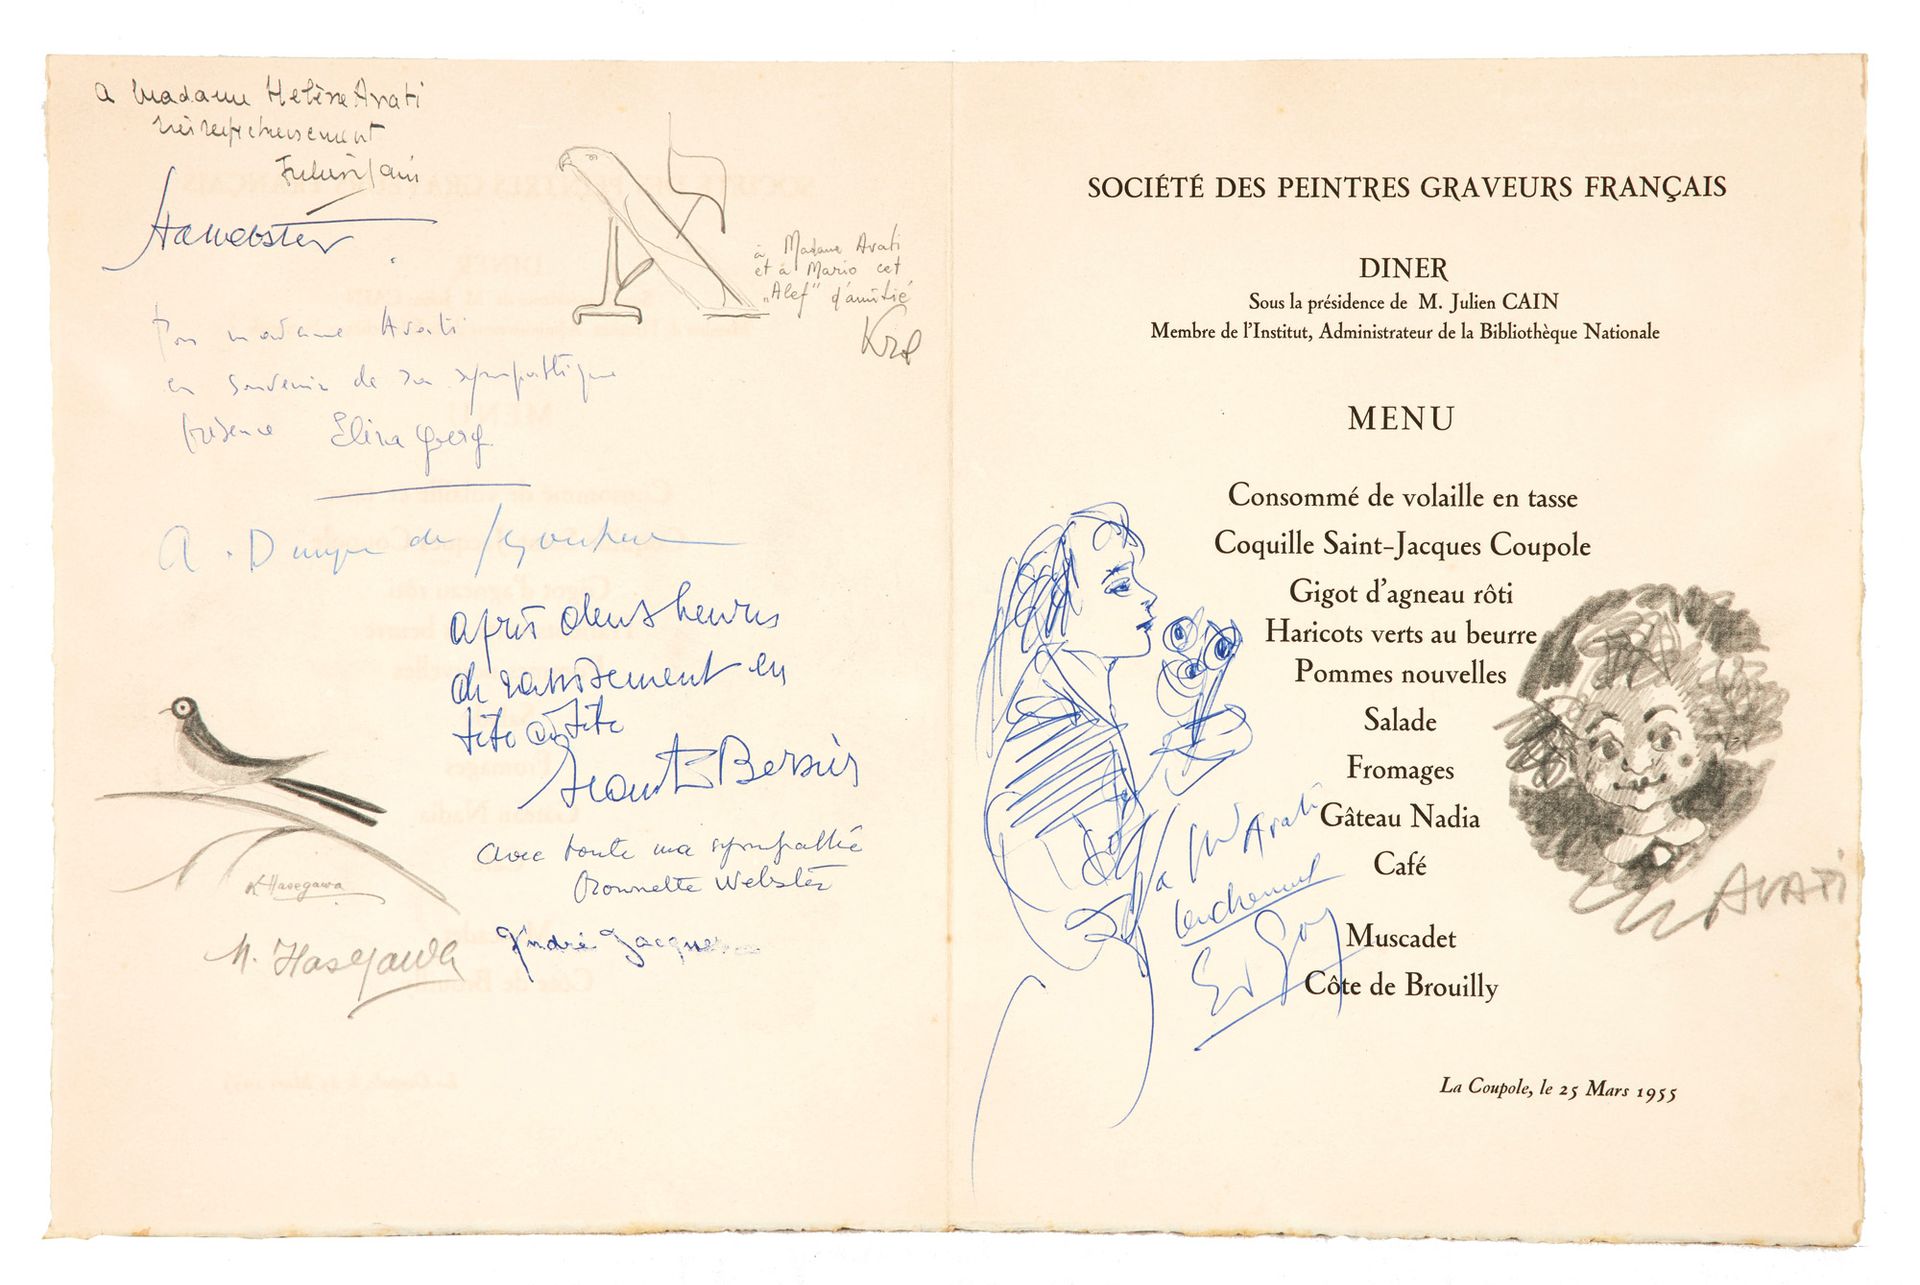 a Madame Hélène Avati
très respectueusement
Julien Cain
Pour madame Avati
en souvenir de sa sympathique
présence
à Madame Avati
et à Mario cet
"Alef" d'amitié
Krol
A. Dunoyer de Segonzac
après deux heures
de ravissement en
tête à tête
Bersier
avec toute ma sympathie
Webster
K Hasegawa
N. Hasegawa
André Jacquemin
SOCIÉTÉ DES PEINTRES GRAVEURS FRANÇAIS
DINER
Sous la présidence de M. Julien CAIN
Membre de l'Institut, Administrateur de la Bibliothèque Nationale
MENU
Consommé de volaille en tasse
Coquille Saint-Jacques Coupole
Gigot d'agneau rôti
Haricots verts au beurre
Pommes nouvelles
Salade
Fromages
Gâteau Nadia
Café
Muscadet
Côte de Brouilly
a Mme Avati
Ed Goerg
AVATI
La Coupole, le 25 Mars 1955